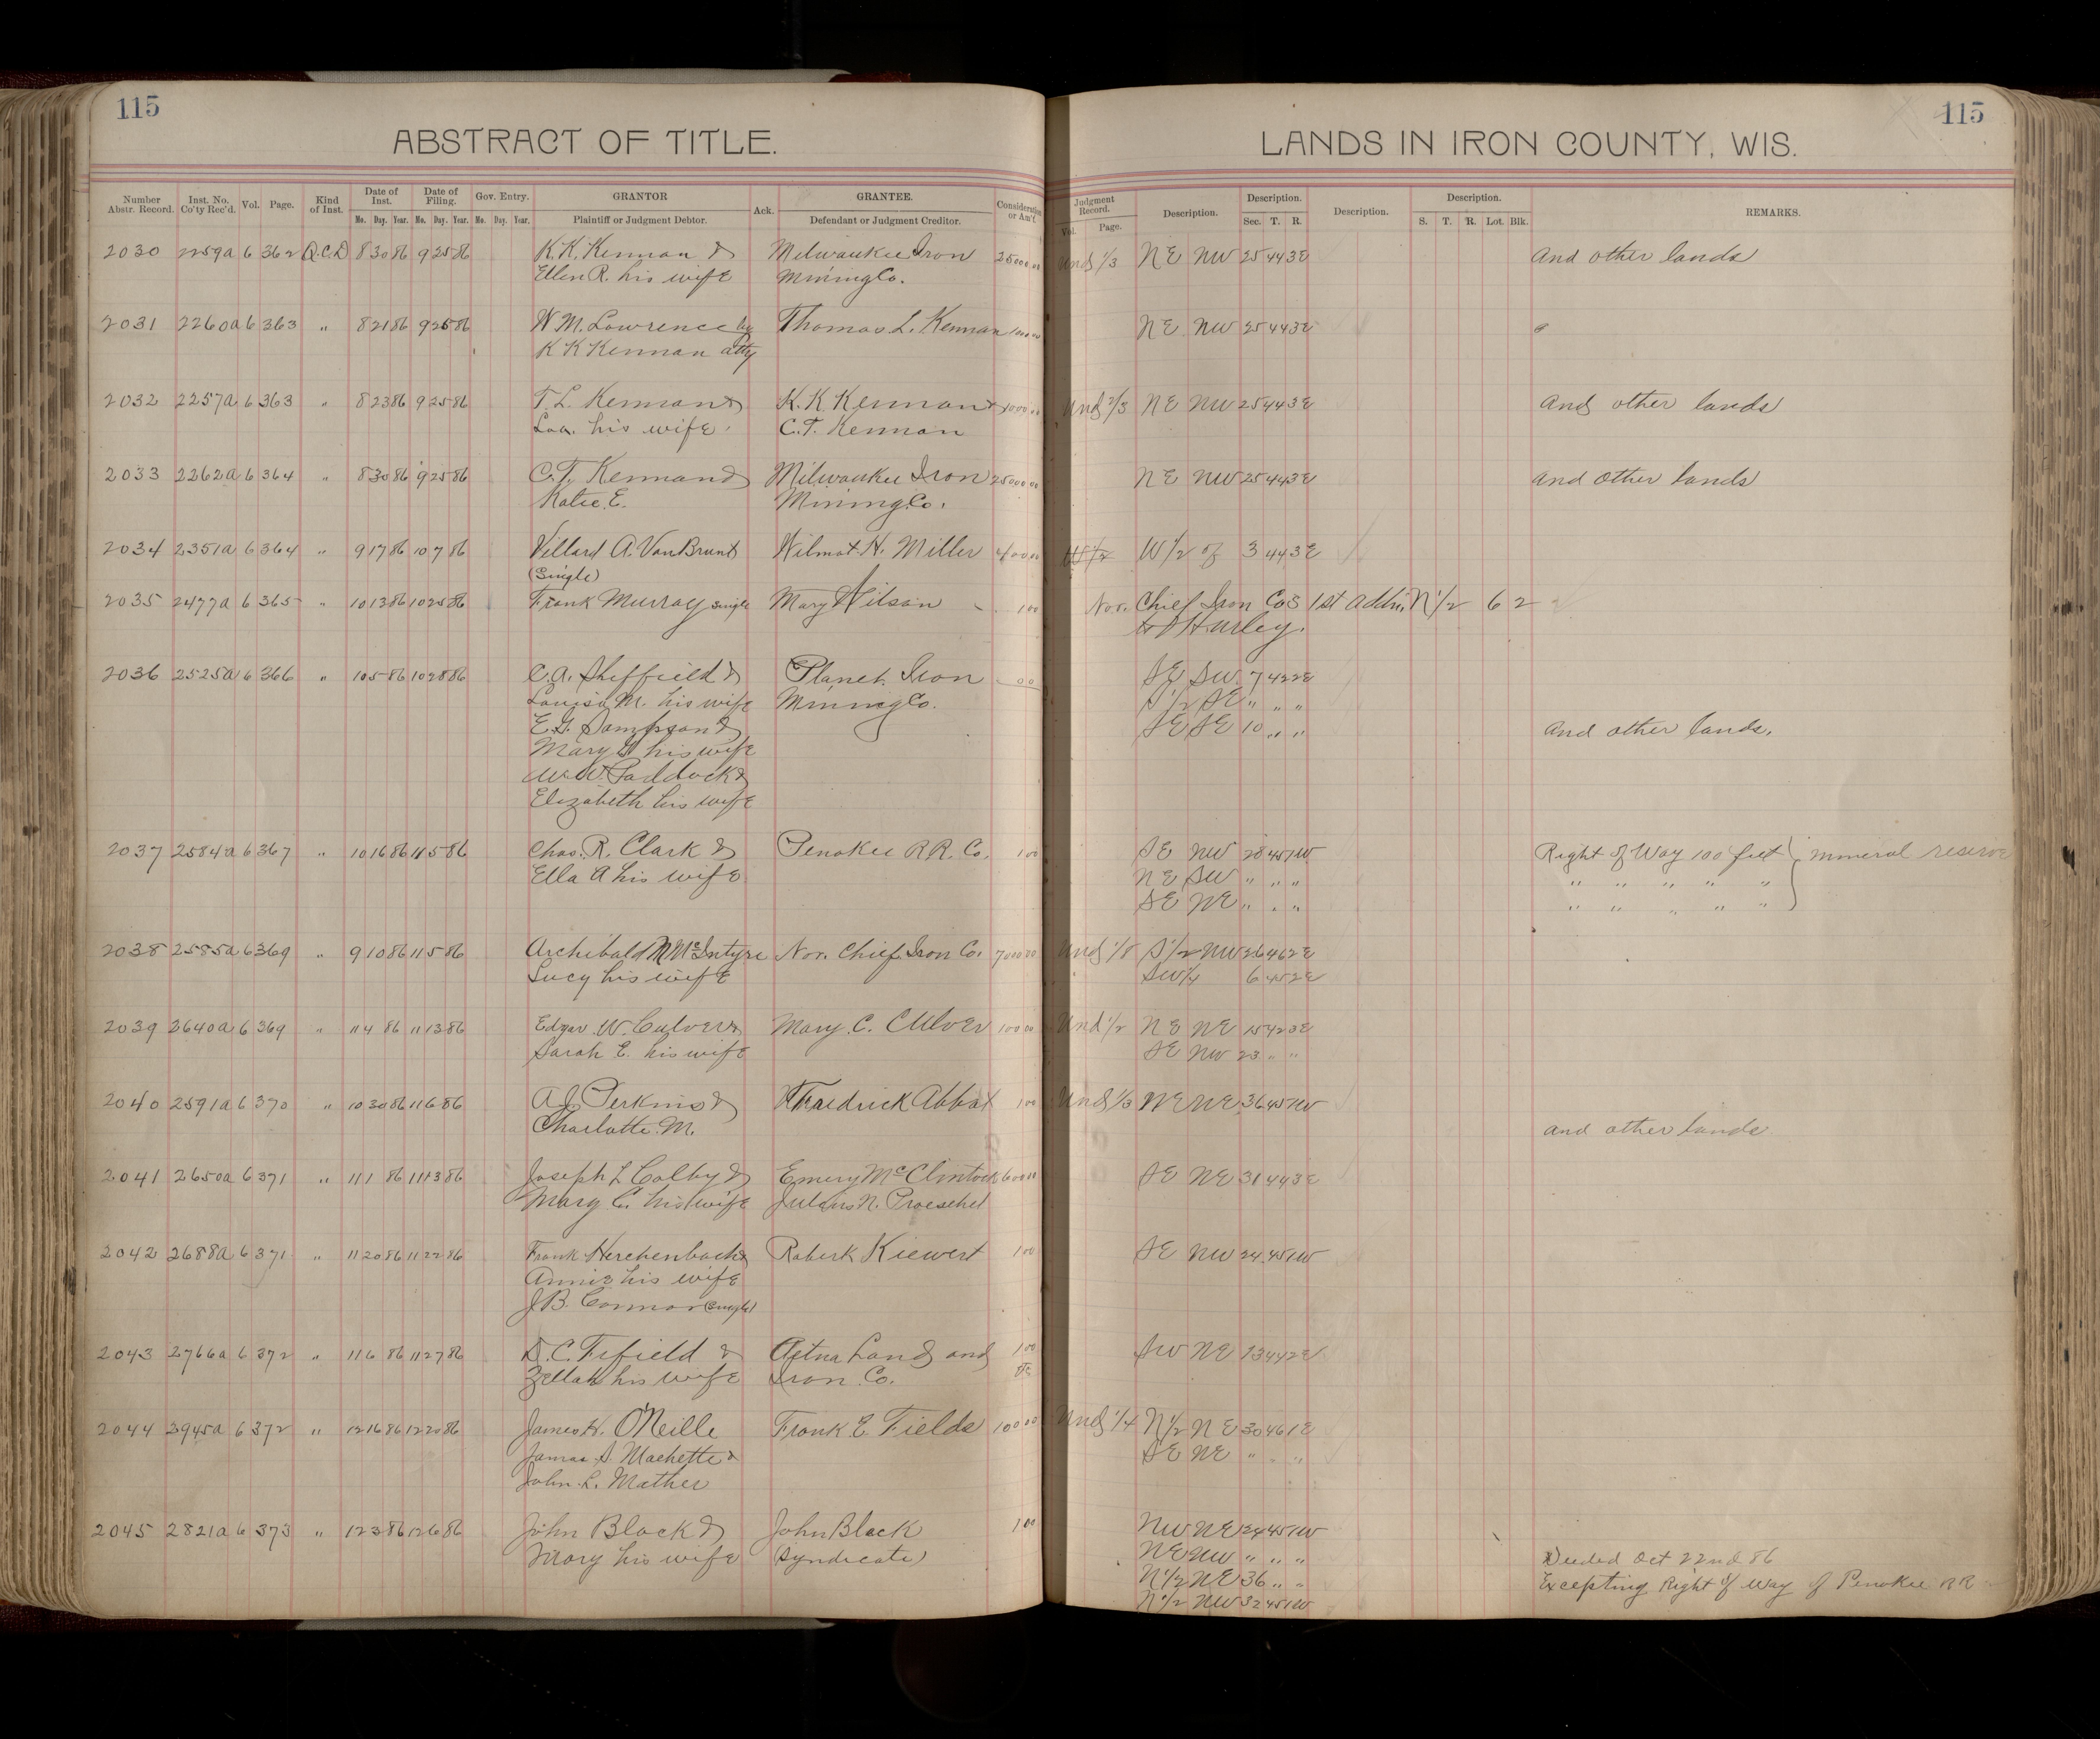 115
115
ABSTRACT OF TITLE.
LANDS IN IRON COUNTY, WIS.
Number Abstr. Record. Inst. No. Co'ty Rec'd. Vol. Page. Kind of Inst. Date of Inst. Mo. Day. Year. Date of Filing. Mo. Day. Year. Gov. Entry. Mo. Day. Year. GRANTOR Plaintiff or Judgment Debtor. Ack. GRANTEE. Defendant or Judgment Creditor. Consideration or Am't Judgment Record. Vol. Page. Description. Description. Sec. T. R. Description. Description. S. T. R. Lot. Blk. REMARKS.
2030 2259a 6 362 Q.C.D 8 30 86 9 25 86 K.K. Kennan & Milwaukee Iron 25000.00 Und 1/3 NE NW 25 44 3E And other lands
Ellen R. his wife Mining Co.
2031 2260a 6 363 " 8 21 86 9 25 86 W.M. Lawrence by Thomas L. Kennan NE NW 25 44 3E
K K Kennan atty
2032 2257a 6 363 " 8 23 86 9 25 86 T.L. Kennan & K.K. Kennan & Und 2/3 NE NW 25 44 3E And other lands
his wife C.T. Kennan
2033 2262a 6 364 " 8 30 86 9 25 86 C.T. Kennan & Milwaukee Iron 25000 00 NE NW 25 44 3E And other lands
Katie E. Mining Co.
2034 2351a 6 364 " 9 17 86 10 7 86 Villard A. Van Brunt Wilmot H. Miller 400 00 W 1/2 of 3 44 3E
(Single)
2035 2477a 6 365 " 10 13 86 10 25 86 Frank Murray single Mary Wilson 1 00 Nor. Chief Iron Co's 1st Addn. N 1/2 6 2
to Hurley.
2036 2525a 6 366 " 10 5 86 10 28 86 C.A. Sheffield & Planet Iron SE SW 7 42 2E
Louisa M. his wife Mining Co. S 1/2 SE " " "
E.G. Sampson & SE SE 10 " " And other lands.
Mary his wife
W.W. Paddock &
Elizabeth his wife
2037 2584a 6 367 " 10 16 86 11 5 86 Chas. R. Clark & Penokee R.R. Co. 1 00 SE NW 28 45 1W Right of Way 100 feet } mineral reserve
Ella A his wife NE SW " " " " " " " "
SE NE " " " " " " " "
2038 2585a 6 369 " 9 10 86 11 5 86 Archibald McIntyre Nor. Chief Iron Co. 7000 00 Und 1/8 S 1/2 NW 26 46 2E
Lucy his wife SW 1/4 6 45 2E
2039 2640a 6 369 " 11 4 86 11 13 86 Edgar W. Culver & Mary C. Culver 100 00 Und 1/2 NE NE 15 42 3E
Sarah E. his wife SE NW 23 " "
2040 2591a 6 370 " 10 30 86 11 6 86 A.J. Perkins & Fraedrick Abbot 1 00 Und 1/3 NE NE 36 45 1W
Charlotte M. and other lands
2041 2650a 6 371 " 11 1 86 11 13 86 Joseph L Colby & Emery McClintock 600 00 SE NE 31 44 3E
Mary C. his wife Julius N. Proeschel
2042 2688a 6 371 " 11 20 86 11 22 86 Frank Herchenbach & Robert Kiewert 1 00 SE NW 24 45 1W
Annie his wife
J.B. Connor (Single)
2043 2766a 6 372 " 11 6 86 11 27 86 D.C. Fifield & Aetna Land and 1 00 SW NE 13 44 2E
Zellah his wife Iron Co.
2044 2945a 6 372 " 12 16 86 12 20 86 James H. O'Neille Frank E. Fields 100 00 Und 1/4 N 1/2 NE 30 46 1E
James S. Machette & SE NE " " "
John L. Mather
2045 2821a 6 373 " 12 3 86 12 6 86 John Black & John Black 1 00 NW NE 24 45 1W
Mary his wife (Syndicate) NE NW " " " Deeded Oct 22nd 86
N 1/2 NE 36 " " Excepting Right of Way of Penokee RR
N 1/2 NW 32 45 1W